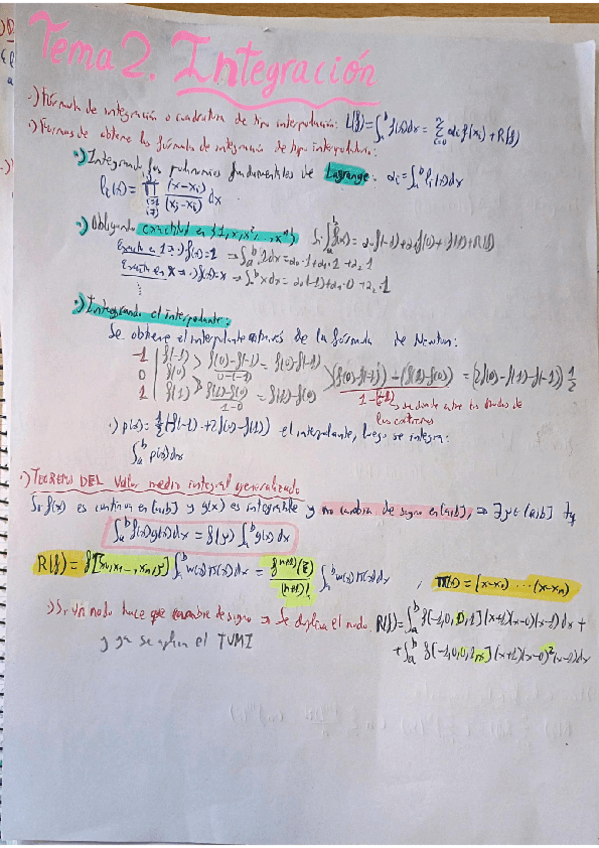 Tema 2. Integración
·) Fórmula de integración o cuadratura de tipo interpolación: L(f)=∫_a^b f(x)dx = Σ_{i=0}^n αi f(xi) + R(f)
·) Formas de obtener las fórmula de integración de tipo interpolatorio:
·) Integrando los polinomios fundamentales de Lagrange: αi=∫_a^b li(x)dx
li(x) = ∏ (x-xi)/(xj-xi) dx
·) Obligando exactitud en {1,x,x²,...,xⁿ} Si ∫_a^b f(x)= α0f(-1)+α1f(0)+ f(1)+R(f)
Exacta en 1 => f(x)=1 → ∫_a^b 1dx = α0·1+α1·1+α2·1
Exacta en x => f(x)=x → ∫_a^b xdx = α0(-1)+α1·0+α2·1
⋮
·) Integrando el interpolante:
Se obtiene el interpolante a través de la fórmula de Newton:
-1 | f(-1) > f(0)-f(-1)/0-(-1) = f(0)-f(-1)
0 | f(0)
1 | f(1) > f(1)-f(0)/1-0 = f(1)-f(0)
(f(0)-f(-1)) - (f(1)-f(0))/1-(-1) = (2f(0)-f(1)-f(-1)) 1/2
→ se divide entre los nodos de los extremos
·) p(x)= 1/2(-f(-1)+2f(0)-f(1)) el interpolante, luego se integra:
∫_a^b p(x)dx
·) TEOREMA DEL Valor medio integral generalizado
Si f(x) es continua en [a,b] y g(x) es integrable y no cambia de signo en [a,b], => ∃ y ∈ [a,b] tq
∫_a^b f(x)g(x)dx = f(y) ∫_a^b g(x)dx
R(f) = f[x0,x1...,xn,y] ∫_a^b w(x)π(x)dx = f^{n+1)}(ξ)/(n+1)! ∫_a^b w(x)π(x)dx , π(x) = (x-x0) ··· (x-xn)
·) Si un nodo hace que cambie de signo → Se duplica el nodo R(f)=∫_a^b f[-1,0,0,1](x+1)(x-0)(x-1)dx +
y ya se aplica el TVMI + ∫_a^b f[-1,0,0,1,x](x+1)(x-0)²(x-1)dx